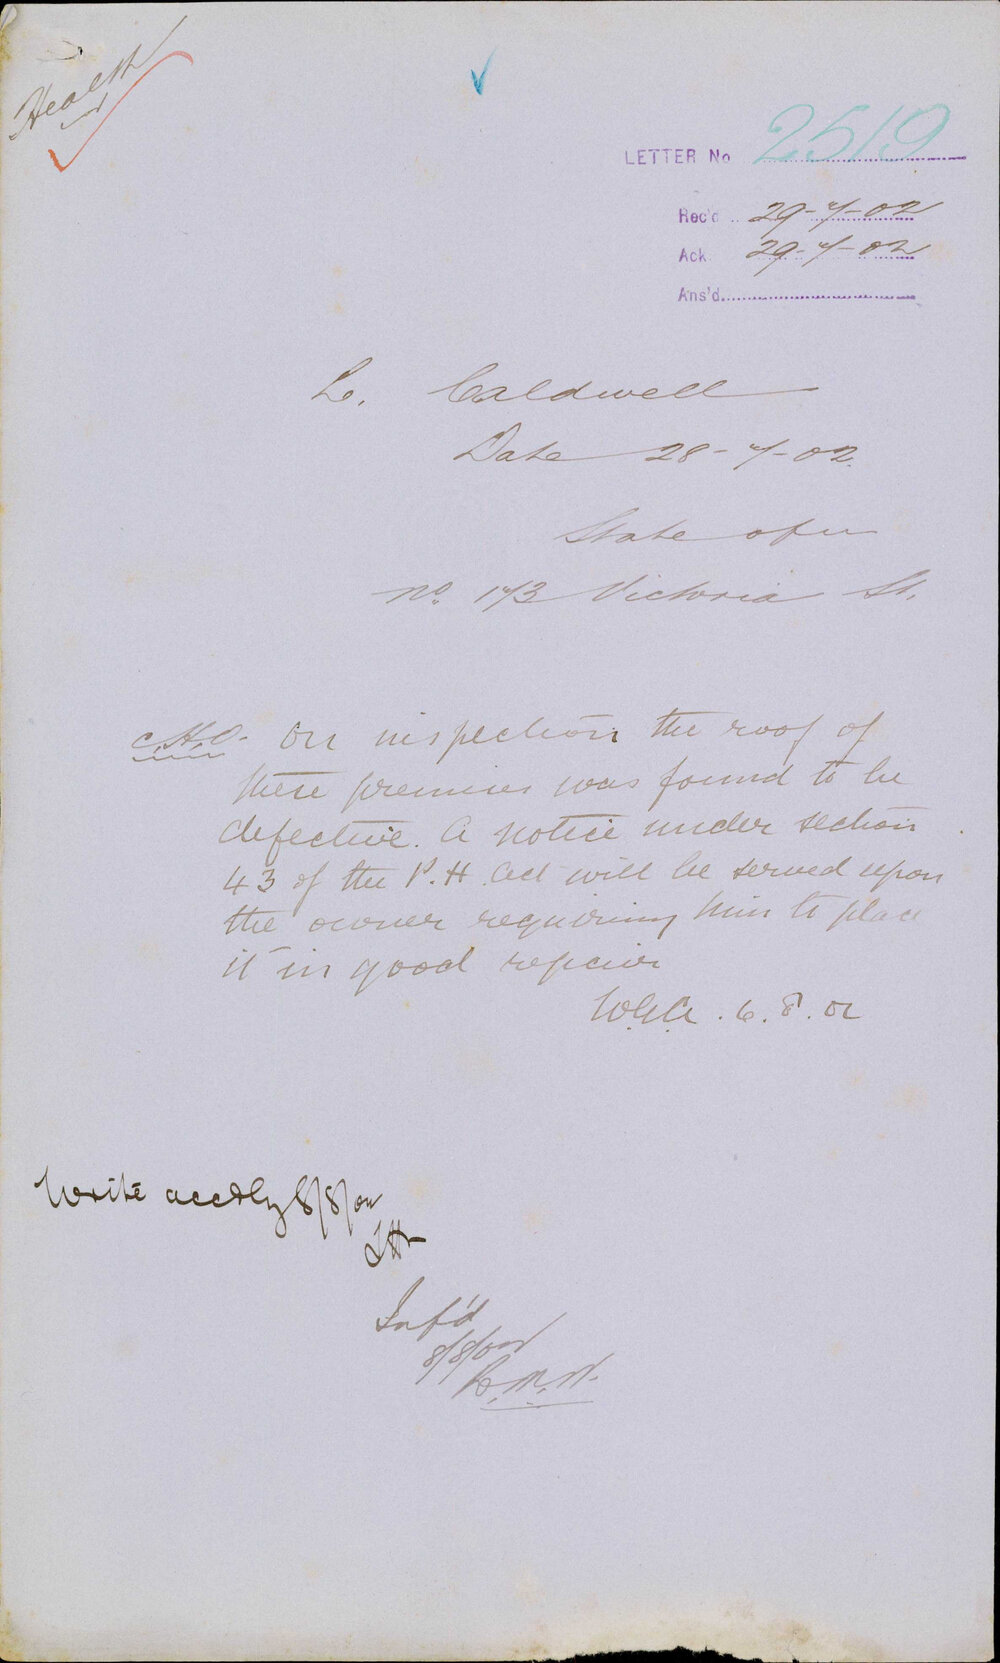 Health
LETTER No 2519
Rec'd 29-7-02
Ack 29-7-02
Ans'd
L. Caldwell
Date 28-7-02.
State of
No. 173 Victoria St.
C.H.O. On inspection the roof of
these premises was found to be
defective. A notice under section
43 of the P.H. Act will be served upon
the owner requiring him to place
it in good repair
W.G.A. 6.8.02
Write accdly 8/8/02
Inf'd
8/8/02